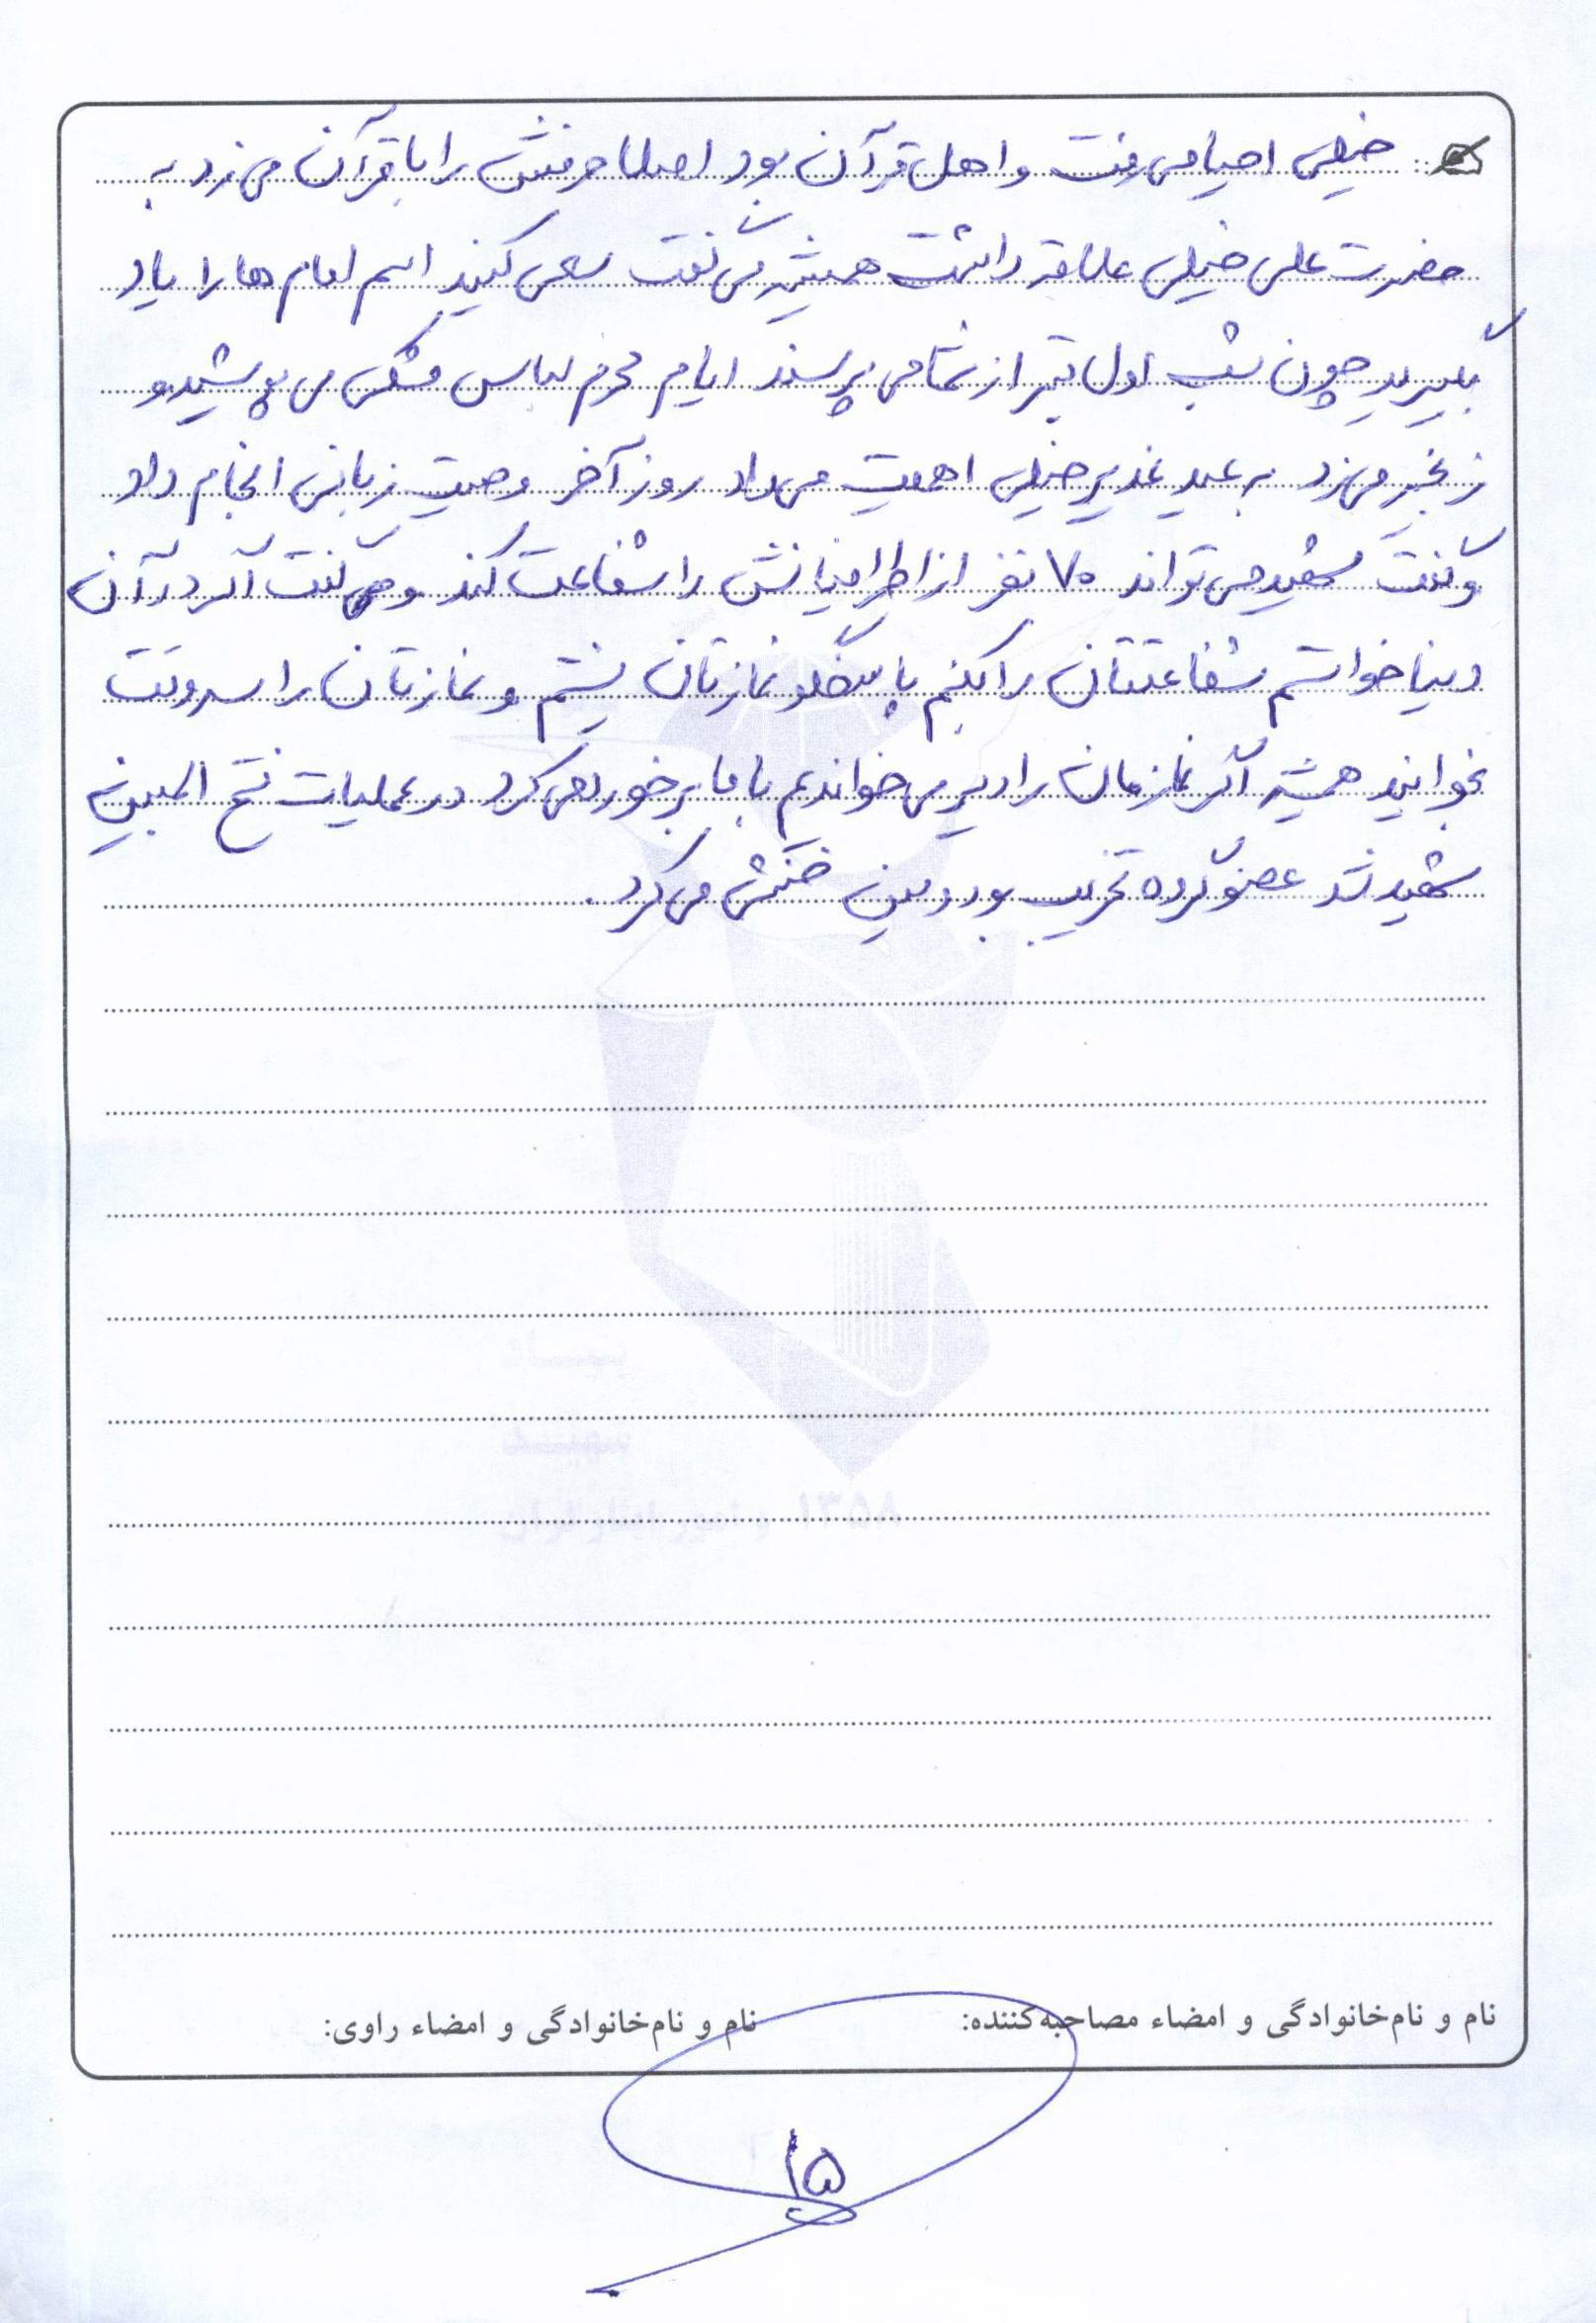 خیلی احیا می رفت و اهل قرآن بود اصلا حرفش را با قرآن می زد به
حضرت علی خیلی علاقه داشت همیشه می گفت سعی کنید اسم امام ها را یاد
بگیرید چون شب اول قبر از شما می پرسند ایام محرم لباس مشکی می پوشید و
زنجیر می زد به عید غدیر خیلی اهمیت می داد روز آخر وصیت زبانی انجام داد
و گفت شهید می تواند ۷۰ نفر از اطرافیانش را شفاعت کند و می گفت اگر در آن
دنیا خواستم شفاعتتان را بکنم پا سنگ نمازتان نیستم و نمازتان را سر وقت
بخوانید همیشه اگر نمازمان را دیر می خواندیم با ما برخورد می کرد در عملیات فتح المبین
شهید شد عضو گروه تخریب بود و مین خنثی می کرد .
نام و نام‌خانوادگی و امضاء مصاحبه‌کننده:
نام و نام‌خانوادگی و امضاء راوی:
۱۵